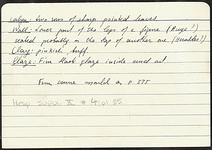 two rows of sharp pointed leaves
Wall: Lower part of the legs of a figure (Huge?)
seated probably on the top of another one (Humbler?)
Clay: pinkish buff.
Glaze: Fine black glaze inside and out
From same mould as P 875